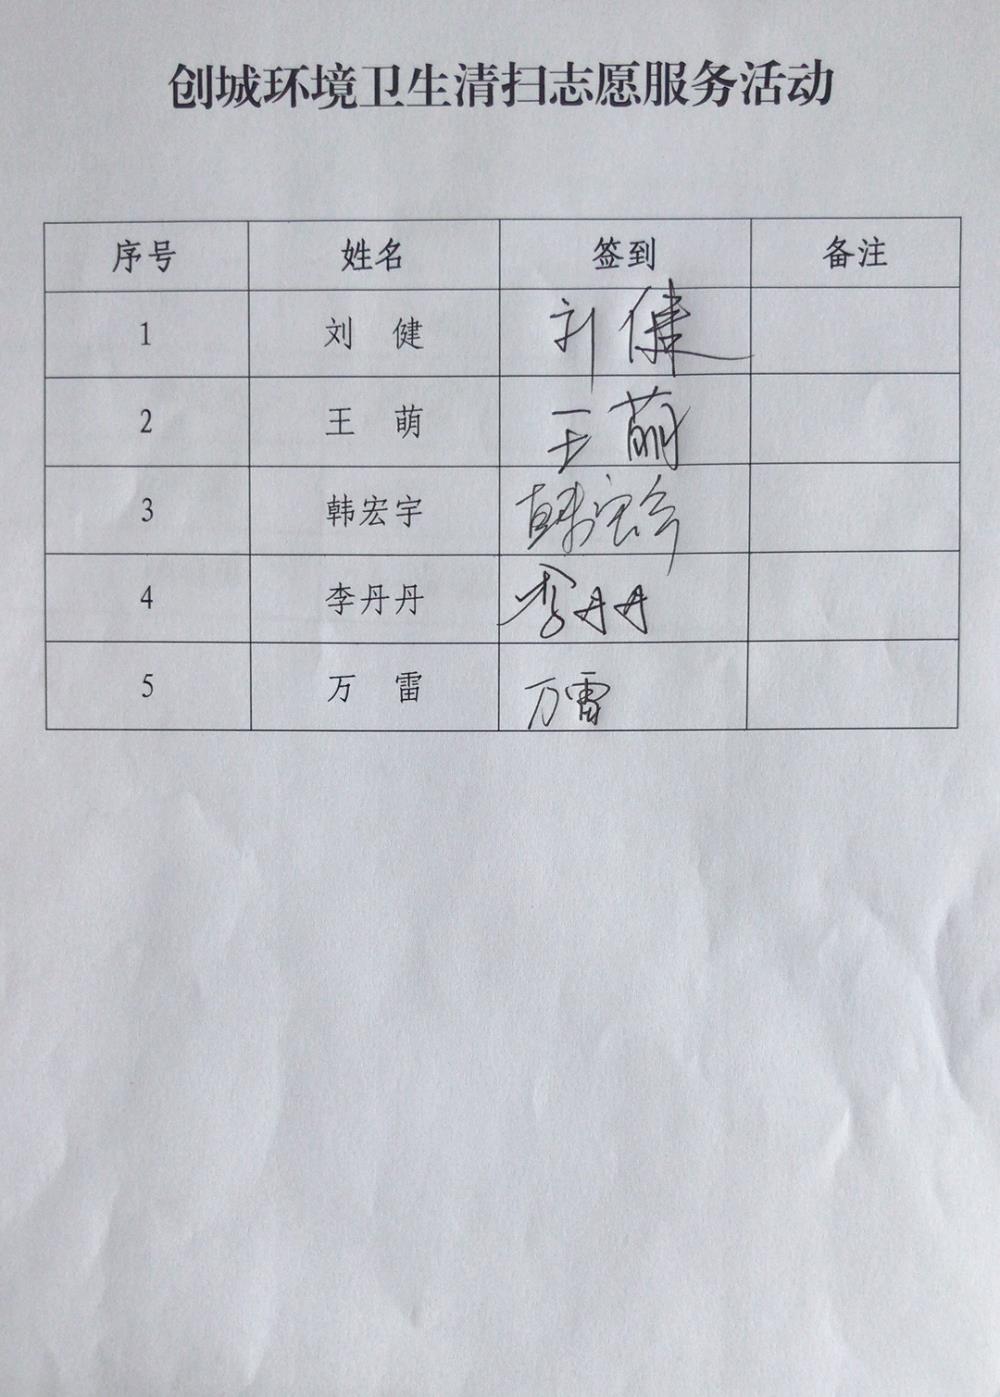 创城环境卫生清扫志愿服务活动
序号 姓名 签到 备注
1 刘 健 刘健
2 王 萌 王萌
3 韩宏宇 韩宏宇
4 李丹丹 李丹丹
5 万 雷 万雷